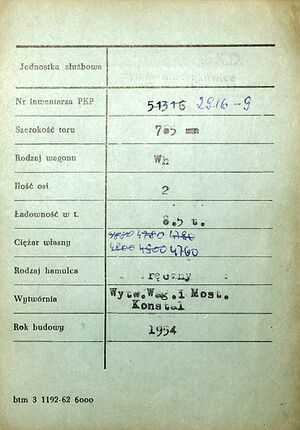 Jednostka służbowa
Nr inwentarza PKP 51316 2916-9
Szerokość toru 785 mm
Rodzaj wagonu Wh
Ilość osi 2
Ładowność w t. 8.5 t.
Ciężar własny 4780 4780
4800 4800 4760
Rodzaj hamulca ręczny
Wytwórnia Wytw.Wag.i Most.
Konstal
Rok budowy 1954
btm 3 1192-62 6000